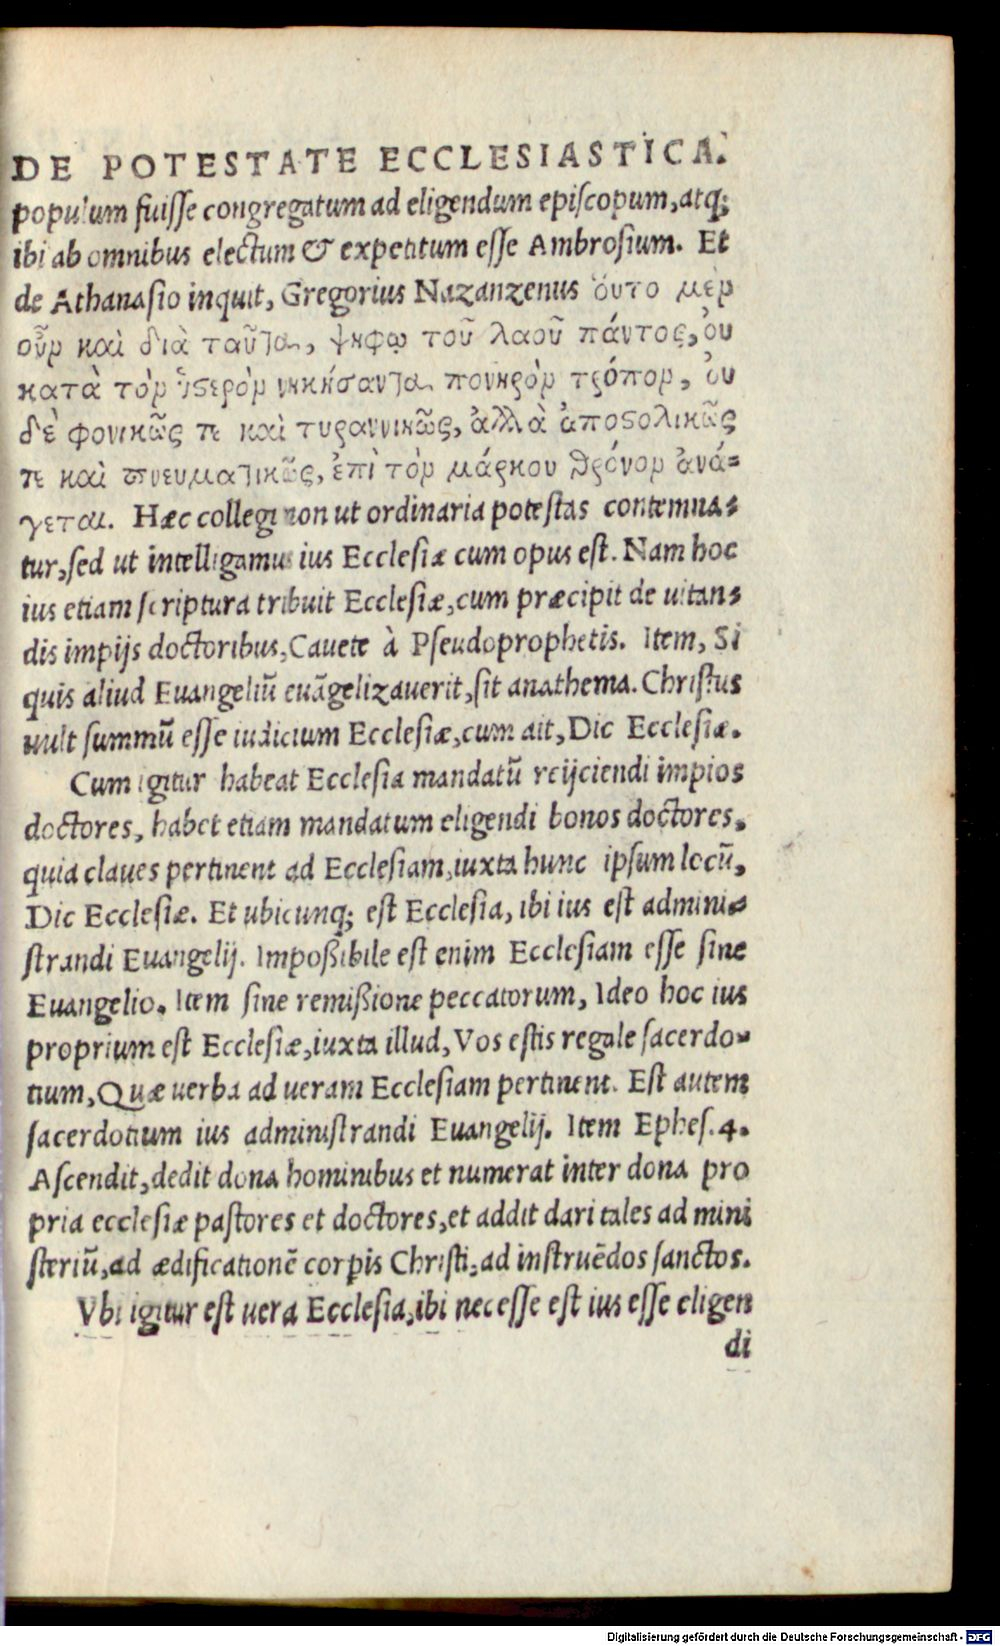 DE POTESTATE ECCLESIASTICA.
populum fuiſſe congregatum ad eligendum epiſcopum, atq;
ibi ab omnibus electum & expetitum eſſe Ambroſium. Et
de Athanaſio inquit, Gregorius Nazanzenus ὅυτο μὲν
οὖν καὶ διὰ ταῦτα, ψηφῳ τοῦ λαοῦ πάντος, ὀυ
κατὰ τὸν ὕϛερὸν νικήσαντα πονηρὸν τρόπον, ὀυ
δὲ φονικῶς τε καὶ τυραννικῶς, ἀλλὰ ἀποϛολικῶς
τε καὶ πνευματικῶς, ἐπὶ τὸν μάρκου θρόνον ἀνά=
γεται. Hæc collegi non ut ordinaria poteſtas contemna=
tur, ſed ut intelligamus ius Eccleſiæ cum opus eſt. Nam hoc
ius etiam ſcriptura tribuit Eccleſiæ, cum præcipit de uitan=
dis impijs doctoribus, Cauete à Pſeudoprophetis. Item, Si
quis aliud Euangeliũ euãgelizauerit, ſit anathema. Chriſtus
uult ſummũ eſſe iudicium Eccleſiæ, cum ait, Dic Eccleſiæ.
Cum igitur habeat Eccleſia mandatũ reijciendi impios
doctores, habet etiam mandatum eligendi bonos doctores,
quia claues pertinent ad Eccleſiam, iuxta hunc ipſum locũ,
Dic Eccleſiæ. Et ubicunq; eſt Eccleſia, ibi ius eſt admini=
ſtrandi Euangelij. Impoßibile eſt enim Eccleſiam eſſe ſine
Euangelio. Item ſine remißione peccatorum, Ideo hoc ius
proprium eſt Eccleſiæ, iuxta illud, Vos eſtis regale ſacerdo=
tium, Quæ uerba ad ueram Eccleſiam pertinent. Eſt autem
ſacerdotium ius adminiſtrandi Euangelij. Item Epheſ. 4.
Aſcendit, dedit dona hominibus et numerat inter dona pro
pria eccleſiæ paſtores et doctores, et addit dari tales ad mini
ſteriũ, ad ædificationẽ corpis Chriſti, ad inſtruẽdos ſanctos.
Vbi igitur eſt uera Eccleſia, ibi neceſſe eſt ius eſſe eligen
di
Digitalisierung gefördert durch die Deutsche Forschungsgemeinschaft - DFG